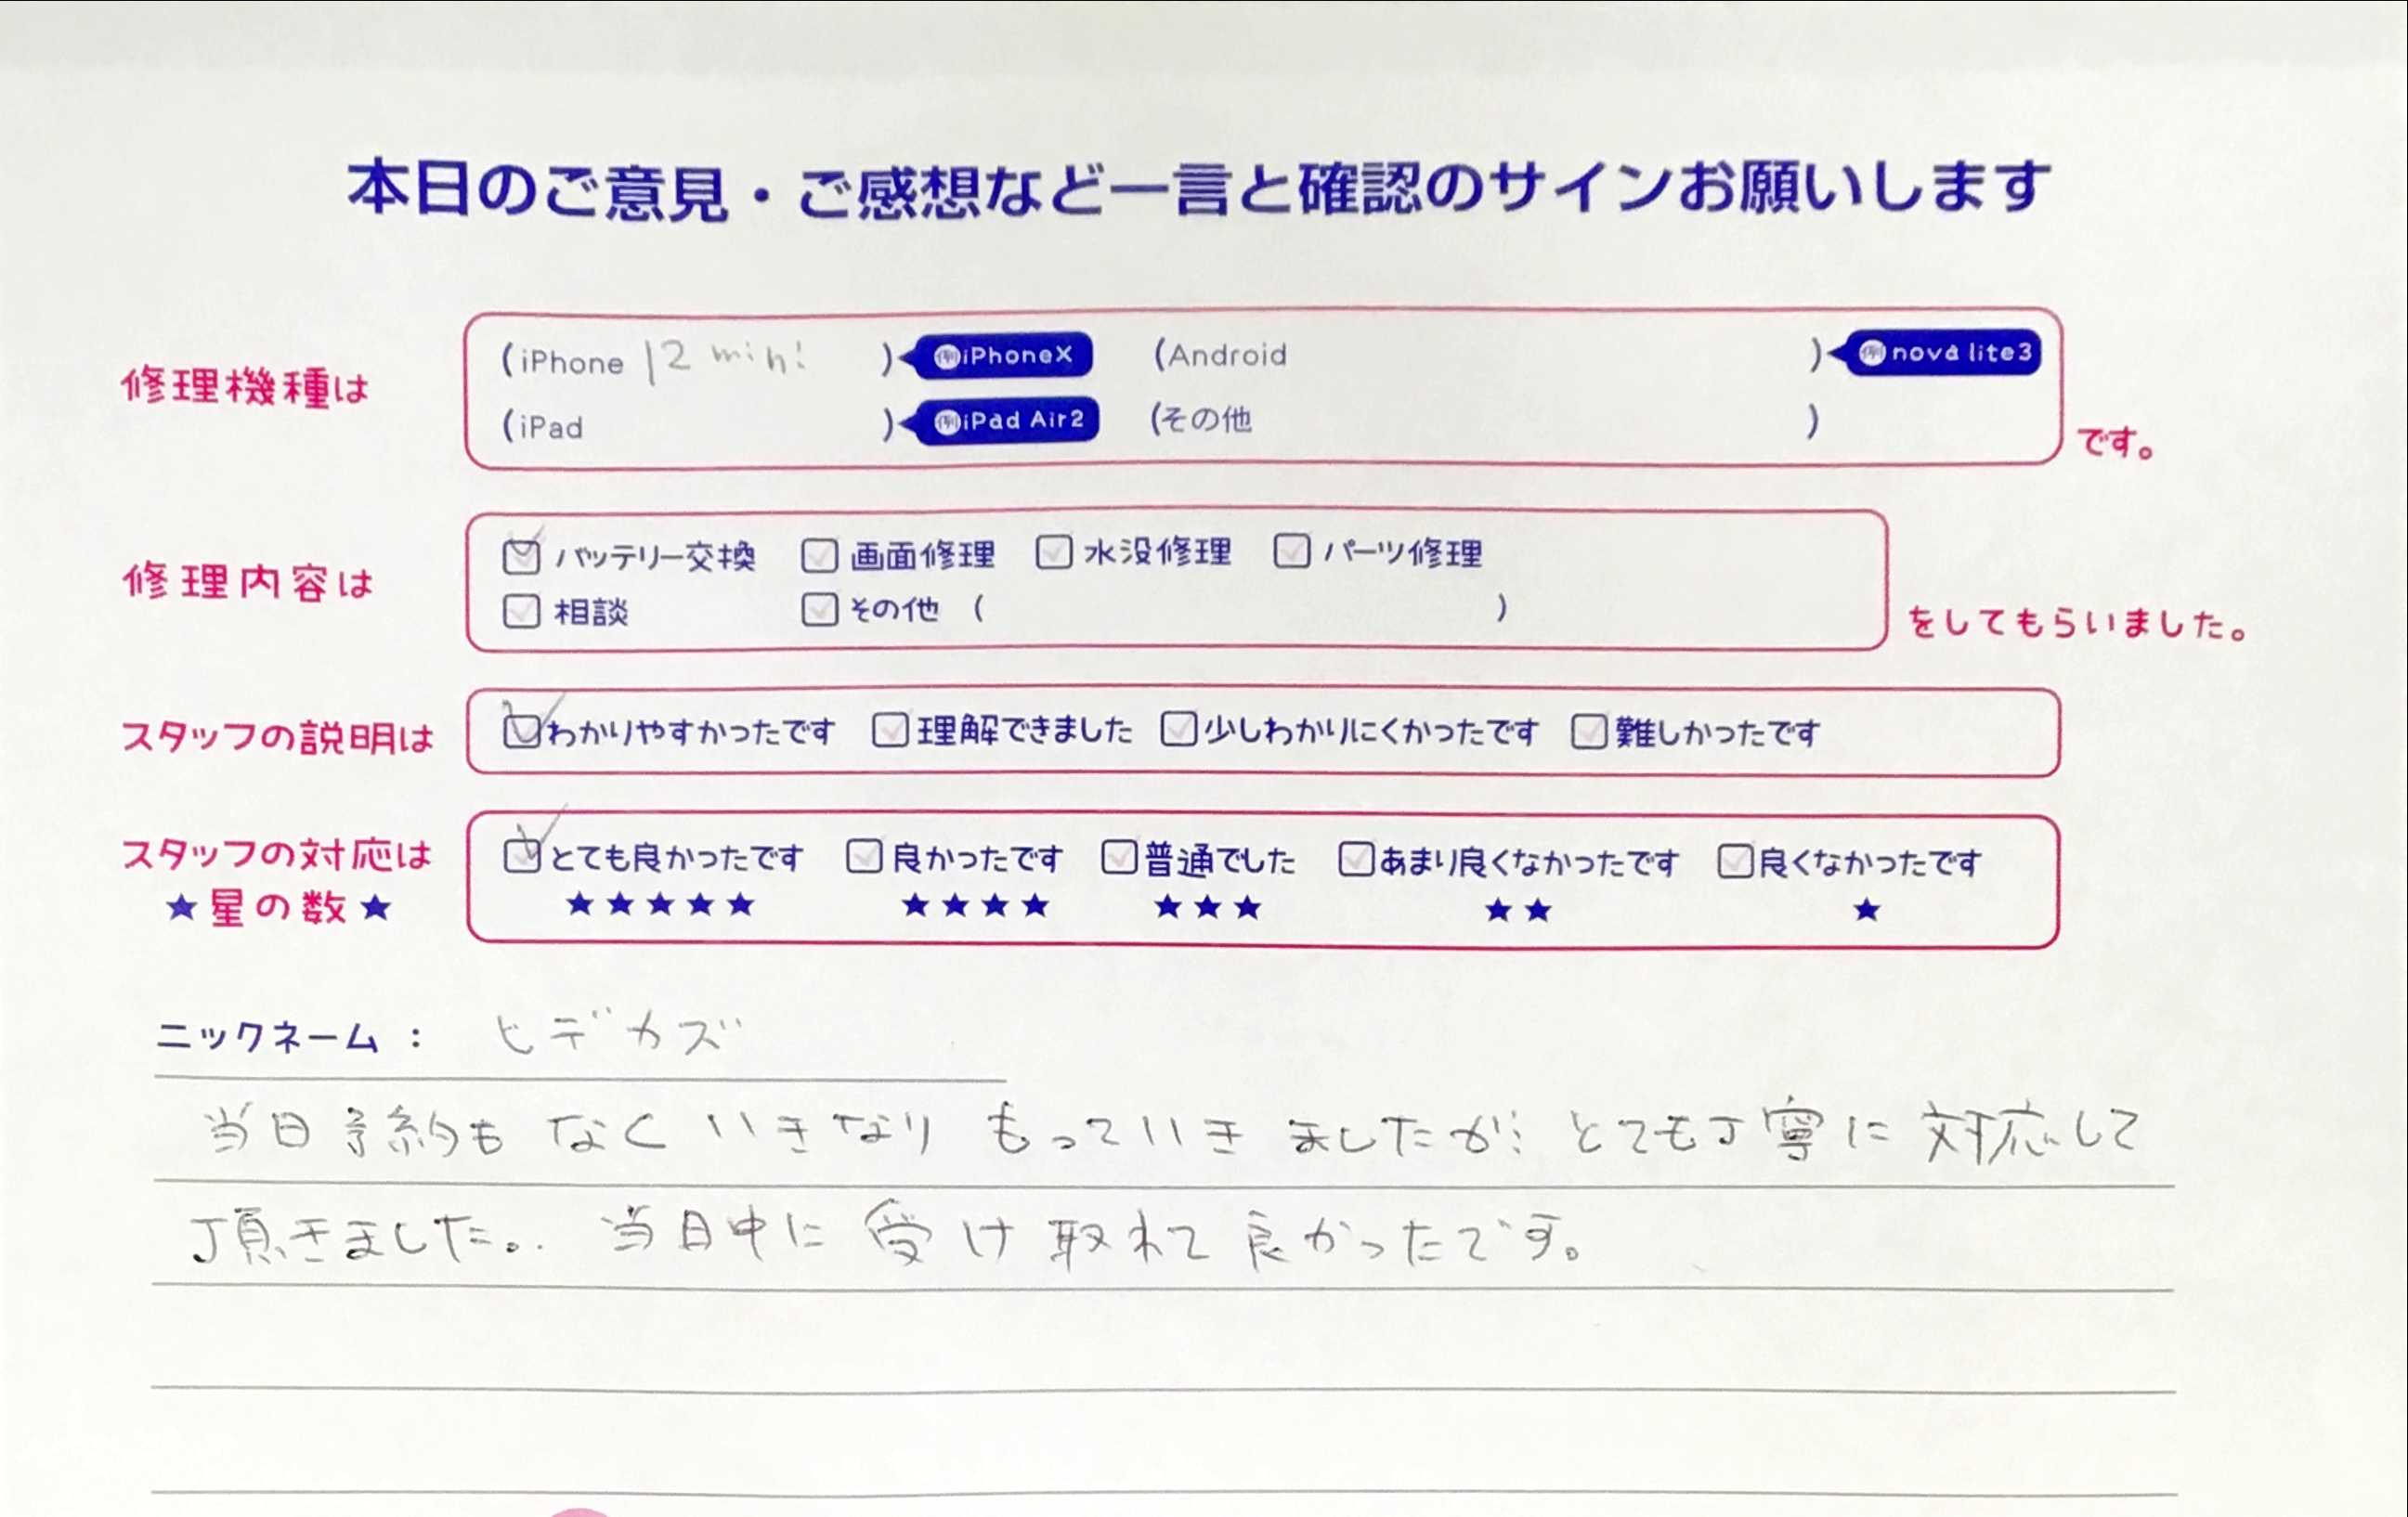 本日のご意見・ご感想など一言と確認のサインお願いします
修理機種は (iPhone 12 mini ) 例iPhoneX (Android ) 例nova lite3
(iPad ) 例iPad Air2 (その他 ) です。
修理内容は バッテリー交換 画面修理 水没修理 パーツ修理
相談 その他 ( ) をしてもらいました。
スタッフの説明は わかりやすかったです 理解できました 少しわかりにくかったです 難しかったです
スタッフの対応は とても良かったです 良かったです 普通でした あまり良くなかったです 良くなかったです
★星の数★ ★★★★★ ★★★★ ★★★ ★★ ★
ニックネーム : ヒデカズ
当日予約もなくいきなりもっていきましたが、とても丁寧に対応して
頂きました。当日中に受け取れて良かったです。